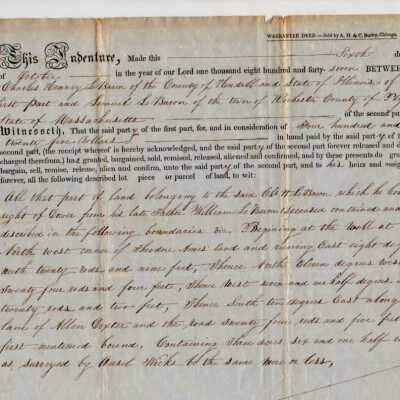 WARRANTEE DEED.—Sold by A. H. & C. Burley, Chicago.
This Indenture, Made this Sixth d
of October in the year of our Lord one thousand eight hundred and forty-seven BETWEE
Charles Henry Le Baron of the County of Kendall and State of Illinois, of
first part and Samuel Le Baron of the town of County of
State of Massachusetts of the second par
Witnesseth, That the said party of the first part, for and in consideration of Four hundred and
twenty five Dollars in hand paid by the said party of
second part, the receipt whereof is hereby acknowledged, and the said party of the second part forever released and
charged therefrom,) has granted, bargained, sold, remised, released, aliened and confirmed, and by these presents do gra
bargain, sell, remise, release, alien and confirm, unto the said party of the second part, and to his heirs and assig
forever, all the following described lot piece or parcel of land, to wit:
All that part of land belonging to the said C. H. Le Baron which he
right of from his late Father William Le Baron deceased contained and
described in the following boundaries viz. Beginning at the Wall at
North west corner of Theodore Ames land and running East eight deg
North twenty rods and nine feet, Thence North Eleven degrees wes
Twenty four rods and four feet, Thence West seven and one half degrees
twenty rods and two feet, Thence South two degrees East along
land of Allen and the road Twenty four rods and five feet
first mentioned bound, Containing Three acres six and one half
as, surveyed by Ansel Weeks be the same more or less,